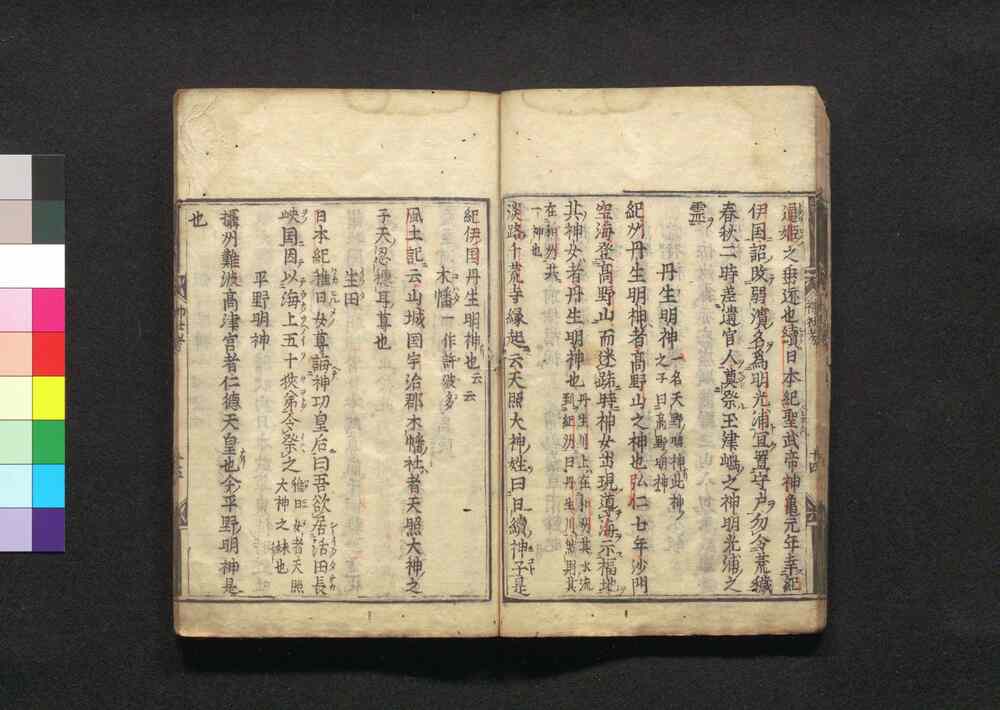 通姫之垂迹也續日本紀聖武帝神亀元年幸紀
伊国詔改弱濱名爲明光浦宜置守戸勿令荒穢
春秋二時差遣官人奠祭玉津嶋之神明光浦之
霊
丹生明神一名天野明神此神之子曰高野明神
紀州丹生明神者高野山之神也弘仁七年沙門
空海登高野山而迷路時神女出現導海示福地
其神女者丹生明神也丹生川上在和州其水流到紀州曰丹生川然則其
在和州共一神也
淡路千荒寺縁起云天照大神姓曰日續神子是
紀伊国丹生明神也云云
木幡一作許波多
風土記云山城国宇治郡木幡社者天照大神之
子天忍穂耳尊也
生田
日本紀稚日女尊誨神功皇后曰吾欲居活田長
峡国因以海上五十狭茅令祭之稚日女者天照大神之妹也
平野明神
攝州難波高津宮者仁徳天皇也今平野明神是
也